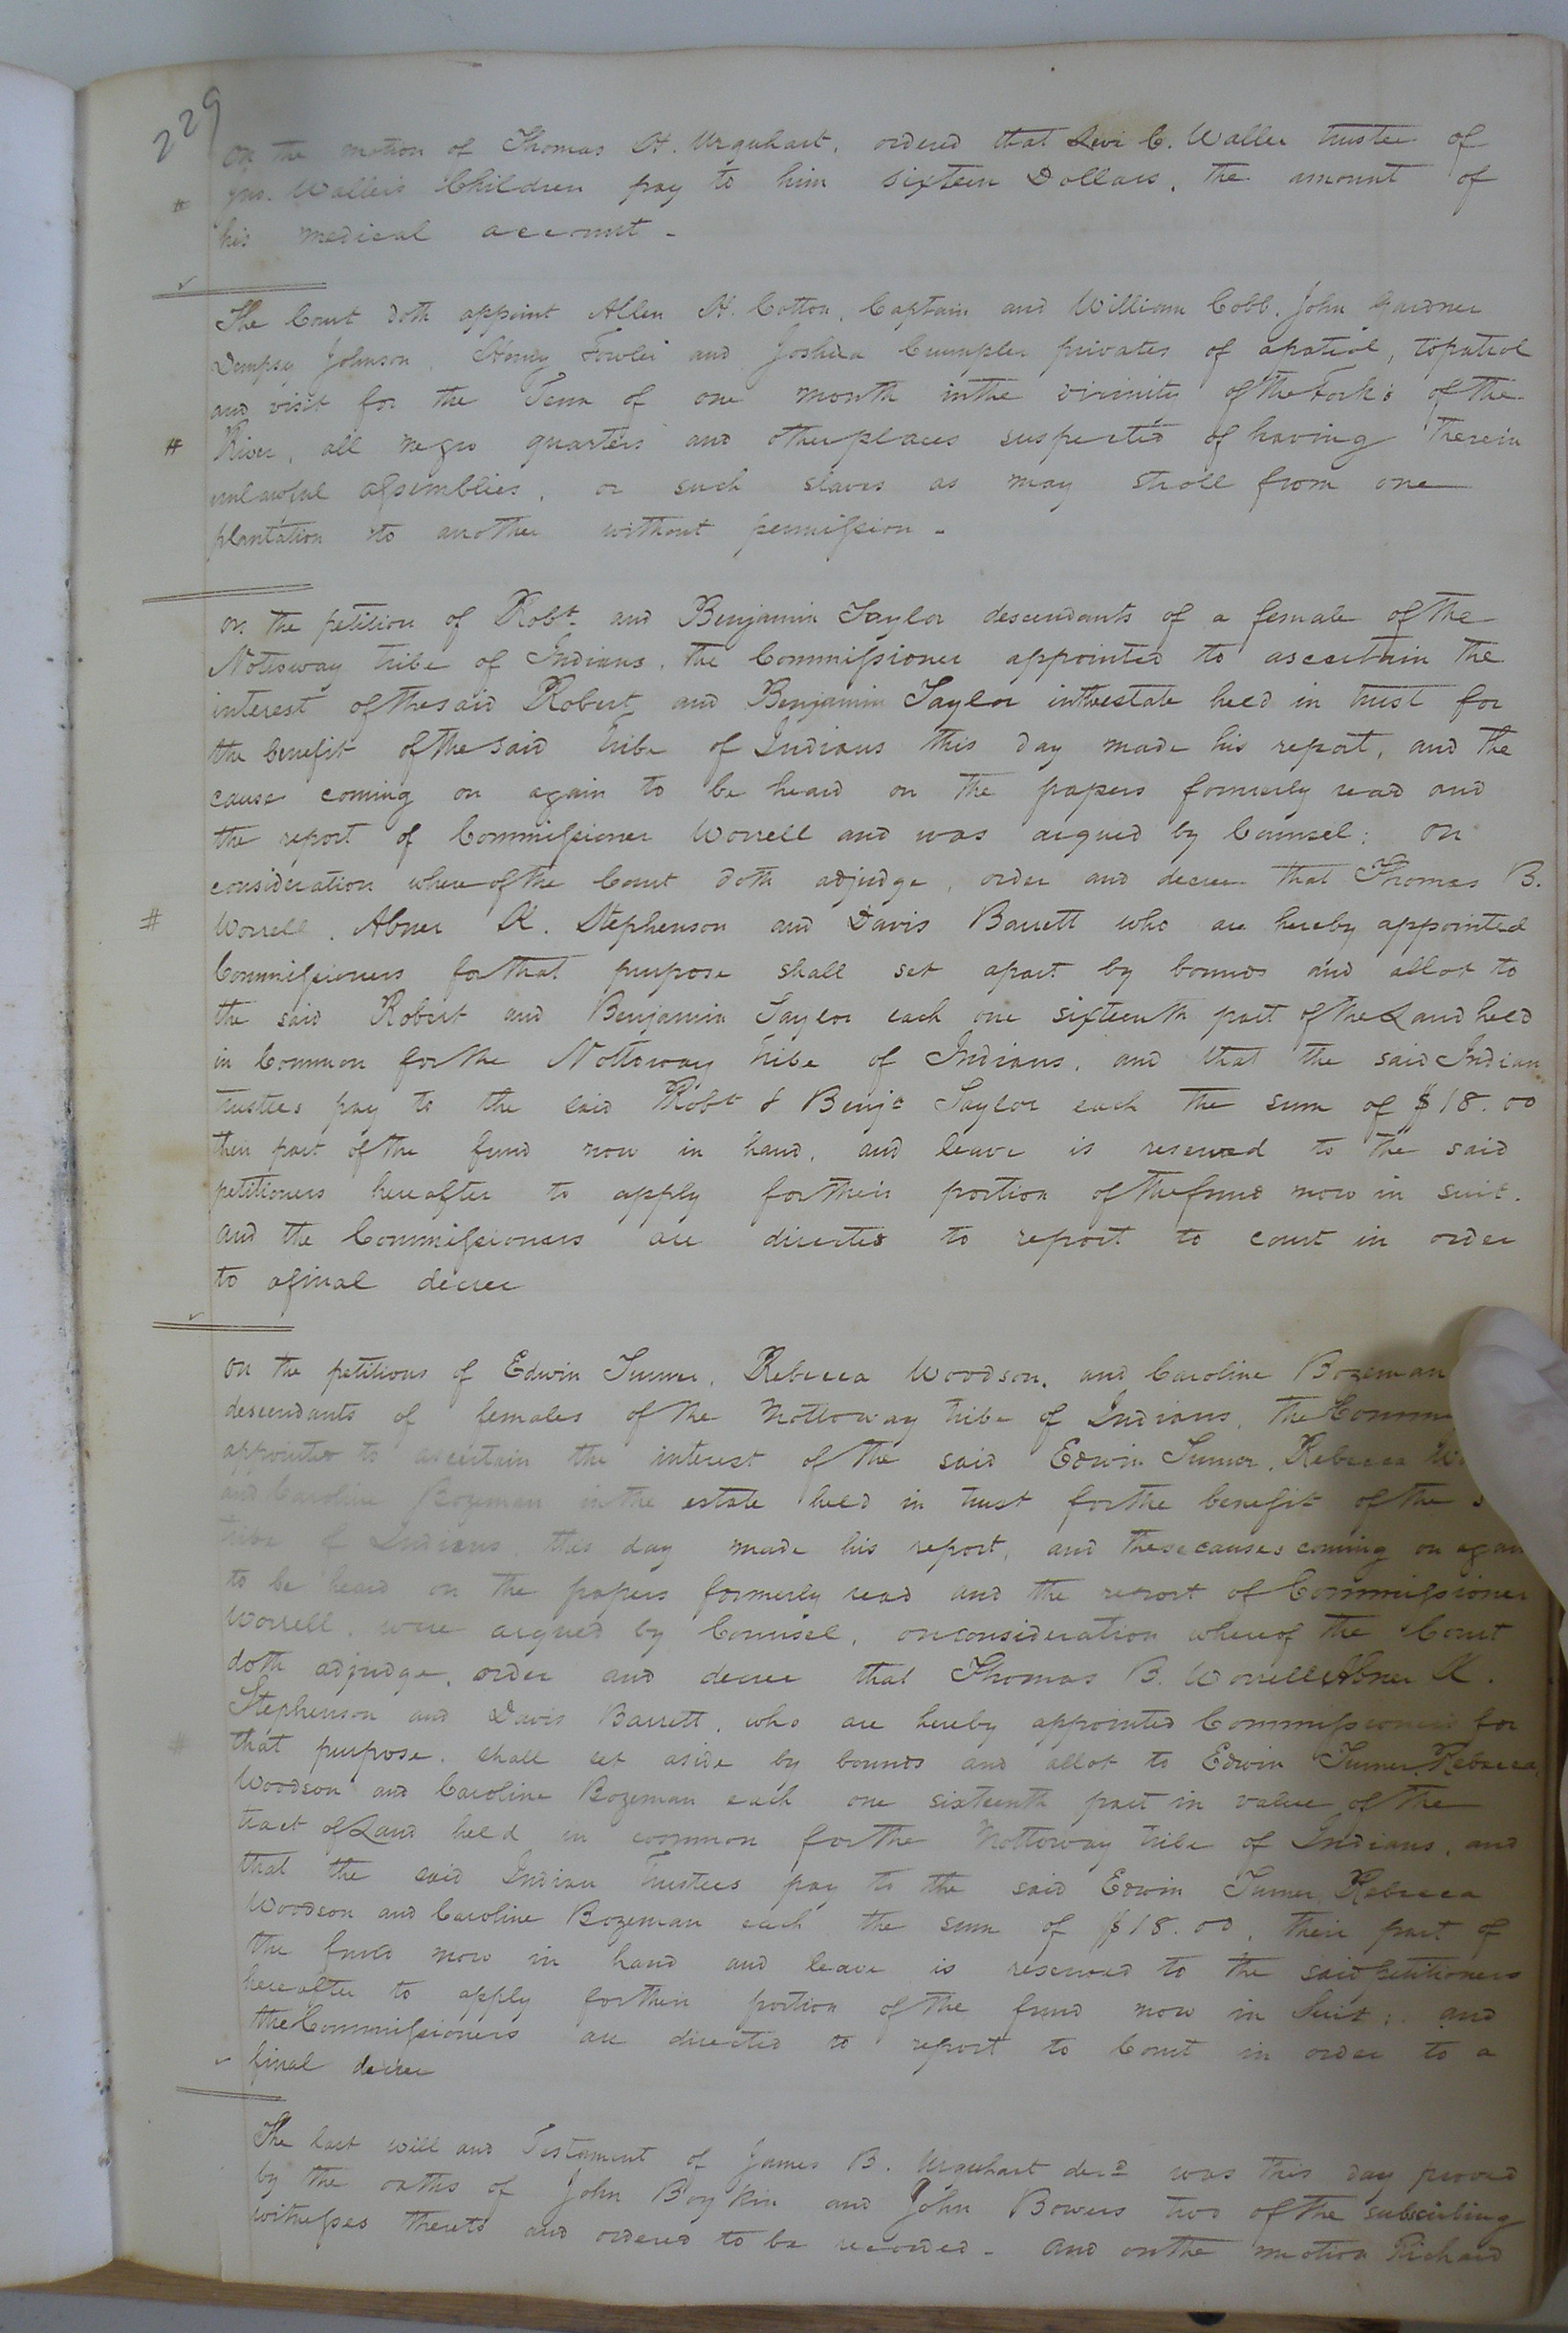 229
On the motion of Thomas H. Urquhart, ordered that Levi C. Waller trustee of
Jno. Waller's Children pay to him sixteen Dollars, the amount of
his medical account -
The Court doth appoint Allen H. Cotton, Captain and William Cobb, John Gardner
Dempsy Johnson, Henry Fowler and Joshua Crumpler privates of apatrol, topatrol
and visit for the Term of one month inthe vicinity oftheForks ofthe
River, all negro quarters and otherplaces suspected of having therein
unlawful assemblies, or such slaves as may stroll from one
plantation to another without permission -
On the petition of Robt and Benjamin Taylor descendants of a female ofthe
Nottoway tribe of Indians, the Commissioner appointed to ascertain the
interest ofthesaid Robert and Benjamin Taylor intheestate held in trust for
the benefit ofthesaid tribe of Indians this day made his report, and the
cause coming on again to be heard on the papers formerly read and
the report of Commissioner Worrell and was argued by Counsel: On
consideration whereofthe Court doth adjudge, order and decree that Thomas B.
# Worrell, Abner K. Stephenson and Davis Barrett who are hereby appointed
Commissioners forthat purpose shall set apart by bounds and allot to
the said Robert and Benjamin Taylor each one sixteenth part oftheLandheld
in Common forthe Nottoway tribe of Indians, and that the saidIndian
trustees pay to the said Robt & Benja Taylor each the sum of $18.00
their part ofthe fund now in hand, and leave is reserved to the said
petitioners hereafter to apply fortheir portion ofthefund now in suit.
and the Commissioners are directed to report to court in order
to afinal decree
On the petitions of Edwin Turner, Rebecca Woodson, and Caroline Bozeman
descendants of females ofthe Nottoway tribe of Indians, theComm
appointed to ascertain the interest ofthe said Edwin Turner, Rebecca
and Caroline Bozeman inthe estate held in trust forthe benefit ofthe
tribe of Indians this day made his report, and thesecauses coming on again
to be heard on the papers formerly read and the report of Commissioner
Worrell, were argued by Counsel, onconsideration whereof the Court
doth adjudge, order and decree that Thomas B. Worrell Abner K.
Stephenson and Davis Barrett, who are hereby appointed Commissioners for
# that purpose, shall set aside by bounds and allot to Edwin Turner, Rebecca
Woodson and Caroline Bozeman each one sixteenth part in value ofthe
tract ofLand held in common forthe Nottoway tribe of Indians, and
that the said Indian Trustees pay to the said Edwin Turner, Rebecca
Woodson and Caroline Bozeman each the sum of $18.00, their part of
the fund now in hand and leave is reserved to the saidpetitioners
hereafter to apply fortheir portion ofthe fund now in Suit; and
theCommissioners are directed to report to Court in order to a
final decree
The last will and Testament of James B. Urquhart decd was this day proved
by the oaths of John Boykin and John Bowers two ofthe subscribing
witnesses thereto and ordered to be recorded - and onthe motion Richard